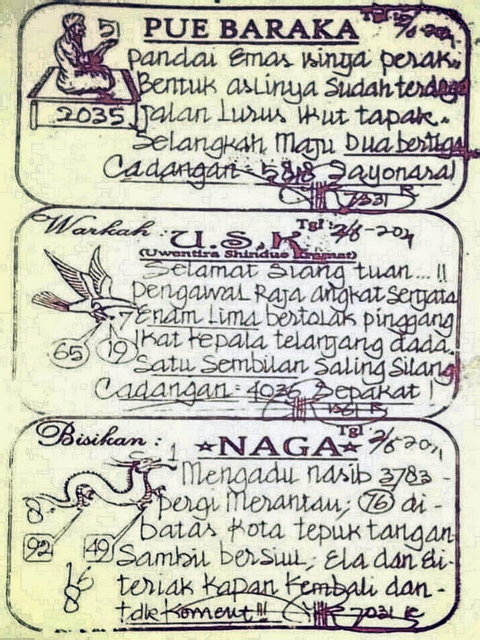 PUE BARAKA
Tgl 2/6-2011
51
pandai Emas isinya perak..
Bentuk aslinya sudah terdaga
2035
Jalan Lurus ikut tapak..
Selangkah Maju Dua bertiga
Cadangan - 5818 Sayonara!
7531 R
Warkah : U.S.K
Tgl : 2/6-2011
(Uwentira Shinduo Kramat)
Selamat siang tuan...!!
pengawal Raja angkat senjata
Enam Lima bertolak pinggang
65 19
Ikat Kepala telanjang dada.
Satu Sembilan Saling Silang
Cadangan - 4036 Sepakat !
Bisikan : ★NAGA★
Tgl 2/6-2011
Mengadu nasib 3783-
pergi Merantau; 76 di-
batas Kota tepuk tangan
92 49
Sambil bersiul; Ela dan Eli-
teriak Kapan Kembali dan-
+dk Koment!!! 7031 R